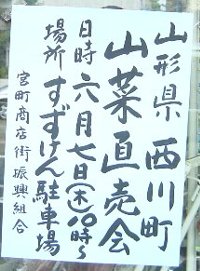 山形県 西川町
山菜直売会
日時 六月七日(木)10時〜
場所 すずけん駐車場
宮町商店街振興組合